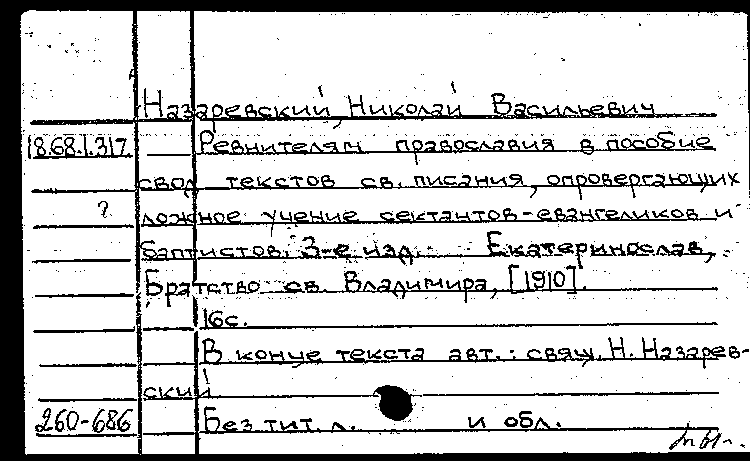 Назаревский, Николай Васильевич
18.68.1.317 Ревнителям православия в пособие
свод текстов св. писания, опровергающих
? ложное учение сектантов-евангеликов и
баптистов. 3-е изд. Екатеринослав,
Братство св. Владимира, [1910].
16с.
В конце текста авт.: свящ. Н. Назарев-
ский
260-686 Без тит. л. и обл.